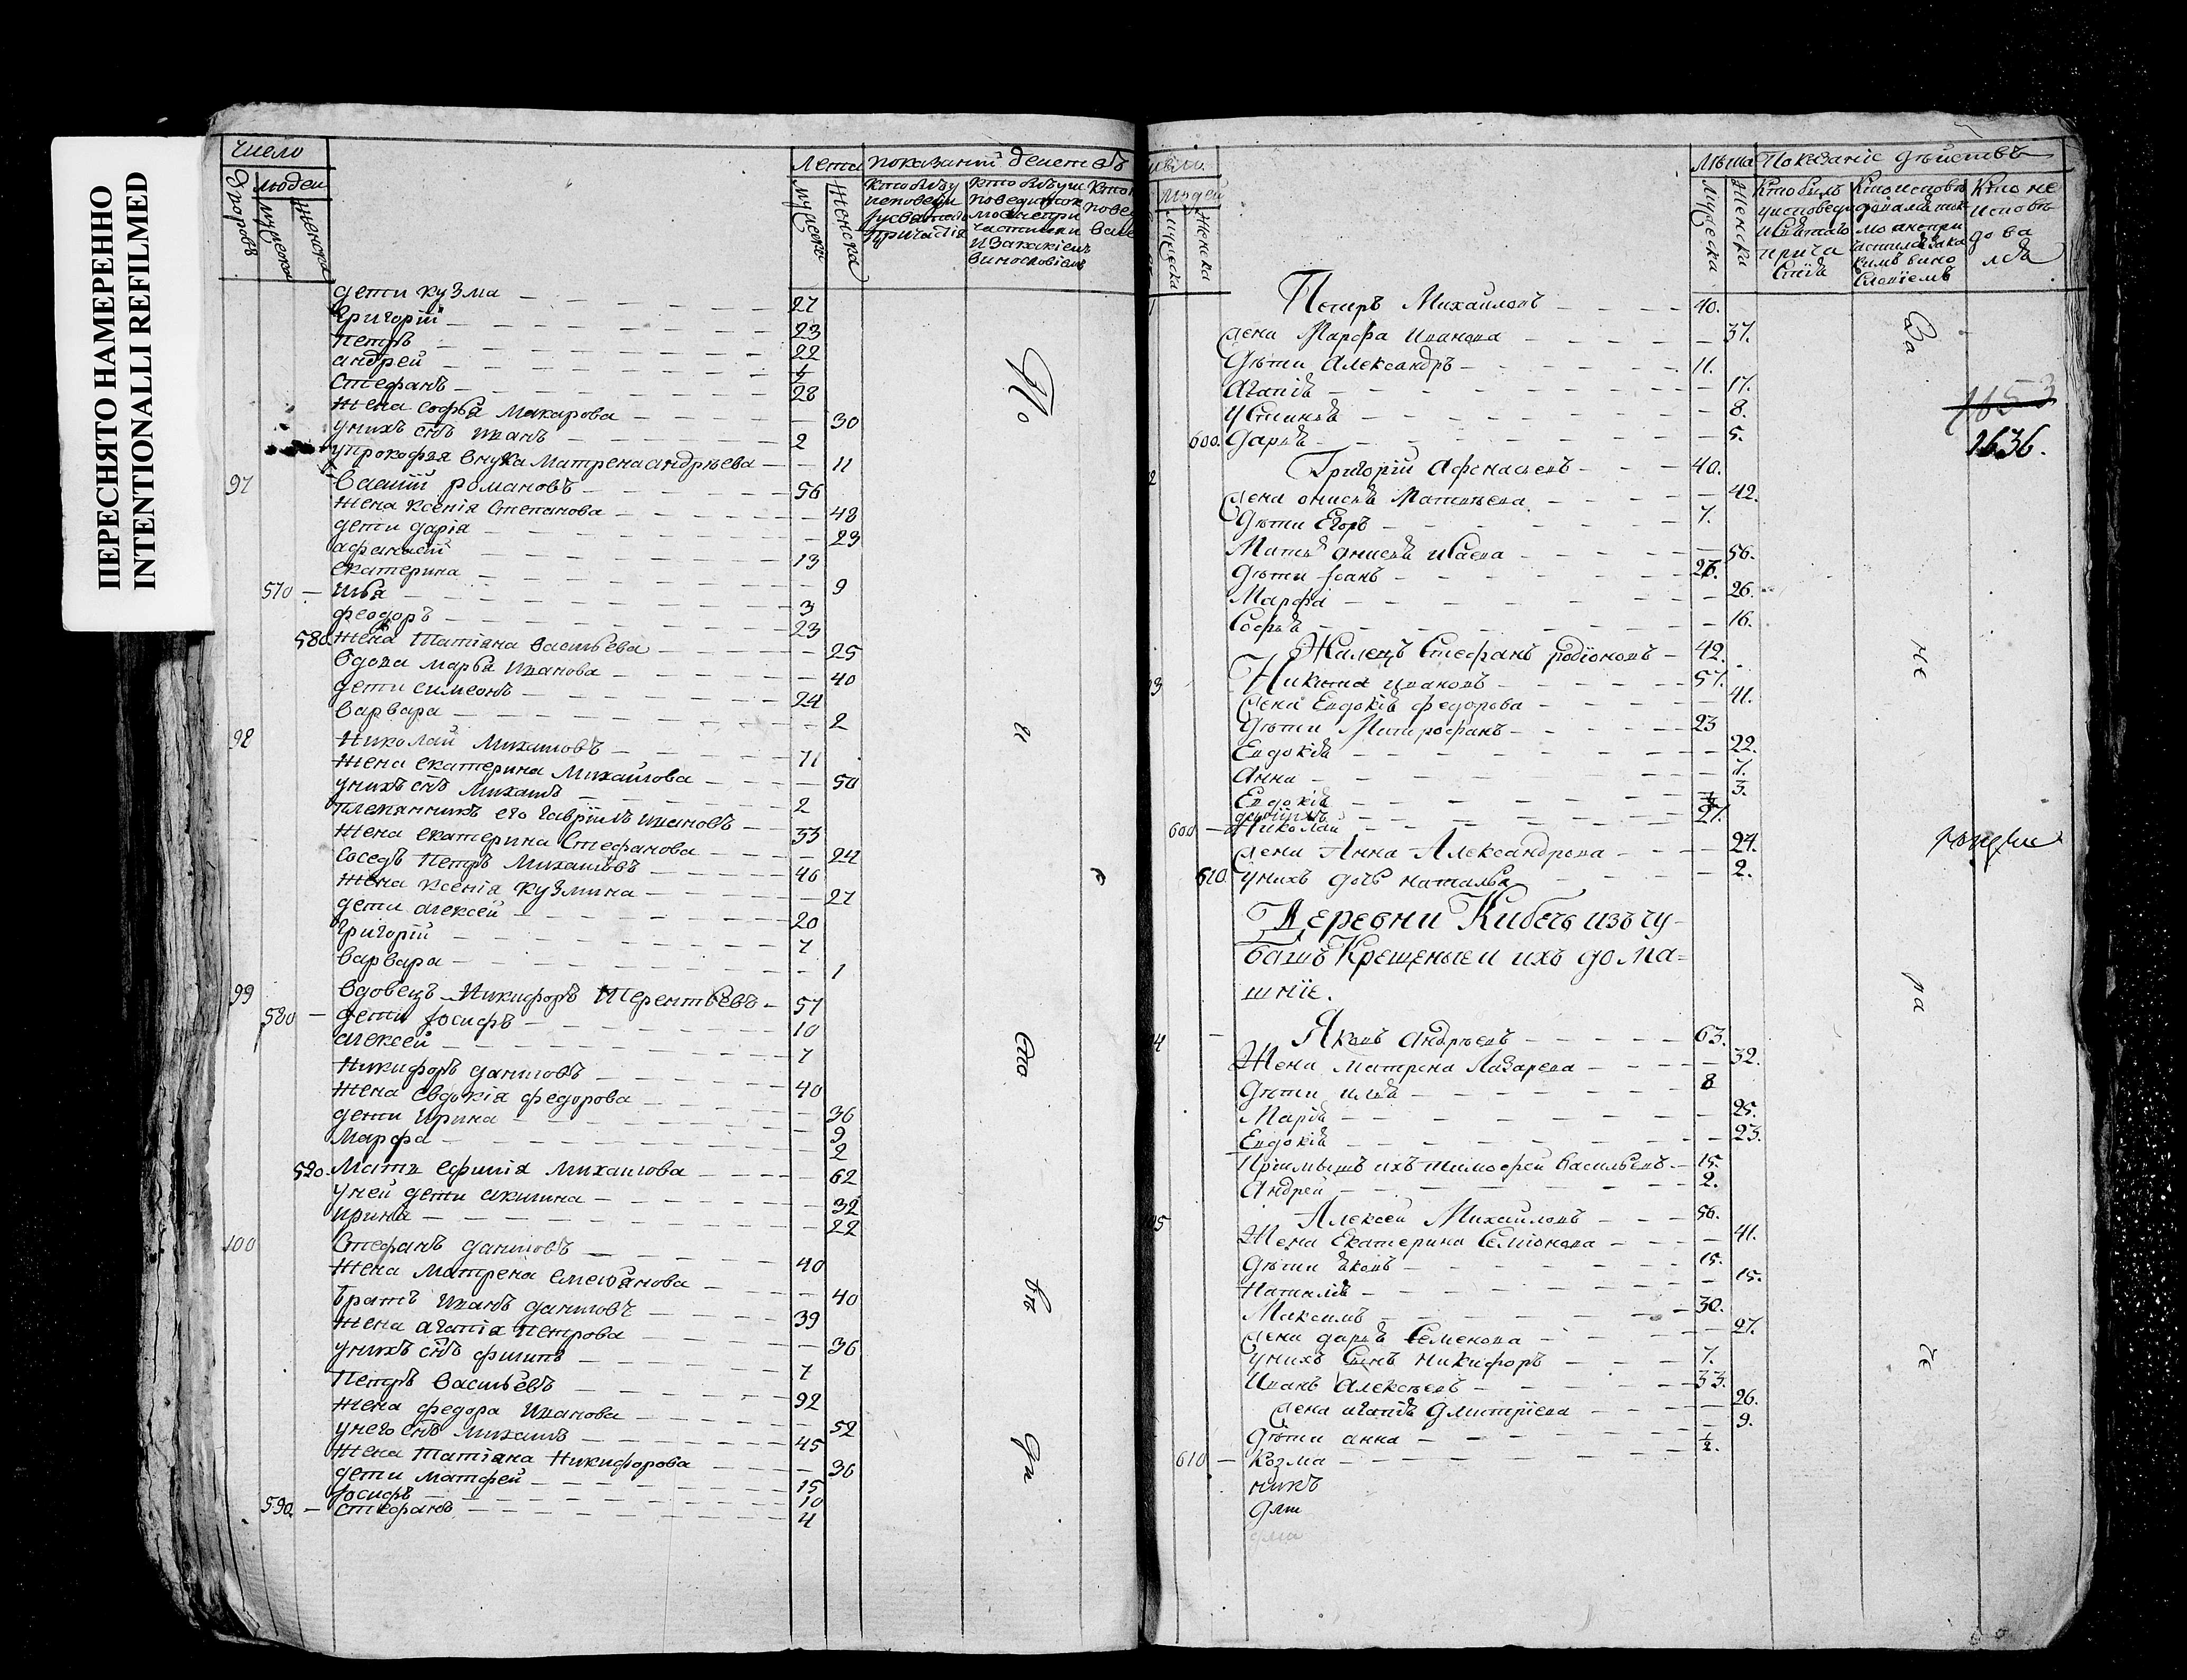 ПЕРЕСНЯТО НАМЕРЕННО
INTENTIONALLI REFILMED
число
дворовъ
людеи
мужеска
женска
Лета
мужеска
женска
показании
дети кузма 27
григории 23
петръ 22
андреи
стефанъ 28
жена софья макарова 30
унихъ снъ иванъ 2
упрокофея внука матрена андрѣева 11
97 васили романовъ 56
жена ксенiя степанова 48
дети дарiя 23
афанасiй 13
екатерина 9
570 илья 3
феодоръ 23
580 жена татiяна васильева 25
вдова марья иванова 40
дети симеонъ 24
варвара 2
98 николаи михаиловъ 71
жена екатерина михаилова 50
унихъ снъ михаилъ 2
племянникъ его гаврiилъ ивановъ 33
жена екатерина стефанова 24
соседъ петръ михаиловъ 46
жена ксенiя кузмина 27
дети алексеи 20
григорiи 7
варвара 1
99 вдовецъ никифоръ терентьевъ 57
580 дети иосифъ 10
алексеи 7
никифоръ даниловъ 40
жена евдокiя федорова 36
дети ирина 9
марфа 2
590 мать ефимiя михаилова 62
унеи дети акилина 32
ирина 22
100 стефанъ даниловъ 40
жена матрена емельянова 40
братъ иванъ даниловъ 39
жена агапiя петрова 36
унихъ снъ филипъ 7
петръ васильевъ 92
жена федора иванова 52
унего снъ михаилъ 45
жена татiяна никифорова 36
дети матфеи 15
иосифъ 10
590 стефанъ 4
По
и
вѣ
людеи
мужеска
женска
Лѣта
Мужеска
Женска
Показанiе дѣиствъ
Кто не исповѣдовался
Петръ Михаиловъ 40.
жена Марфа Иванова 37.
Дѣти Александръ 11.
Агапiя 17.
Устинья 8.
600. Дарья 5.
Григорiи Афонасьевъ 40.
жена онисья Матвѣева 42.
Дѣти Егоръ 7.
Мать онисья исаева 56.
дѣти Iоанъ 26.
Марфа 26.
Софья 16.
Жилецъ Стефанъ родiоновъ 42.
Никита ивановъ 57.
жена Евдокiя федорова 41.
Дѣти Митрофанъ 23
Евдокiя 22.
Анна 7.
Евдокiя 3.
600 Николаи 27.
жена Анна Александрова 24.
610. унихъ дочь наталья 2.
Деревни Кибечь изъ чу-
вашъ Крещеныеи ихъ дома=
шнiе.
Яковъ Андрѣевъ 63.
Жена Матрена Лазарева 32.
Дѣти илья 8
Марiя 25.
Евдокiя 23.
Прiимышъ ихъ тимофеи васильевъ 15.
Андреи 2.
Алексеи Михаиловъ 56.
Жена Екатерина Семiонова 41.
Дѣти яковъ 15.
Наталiя 15.
Максимъ 30.
жена дарья Семенова 27.
унихъ Сынъ никифоръ 7.
Иванъ Алексѣевъ 33.
жена агапiя Дмитрiева 26.
Дѣти анна 9.
610 Козма ½.
За
не
ра
че
1653
1636.